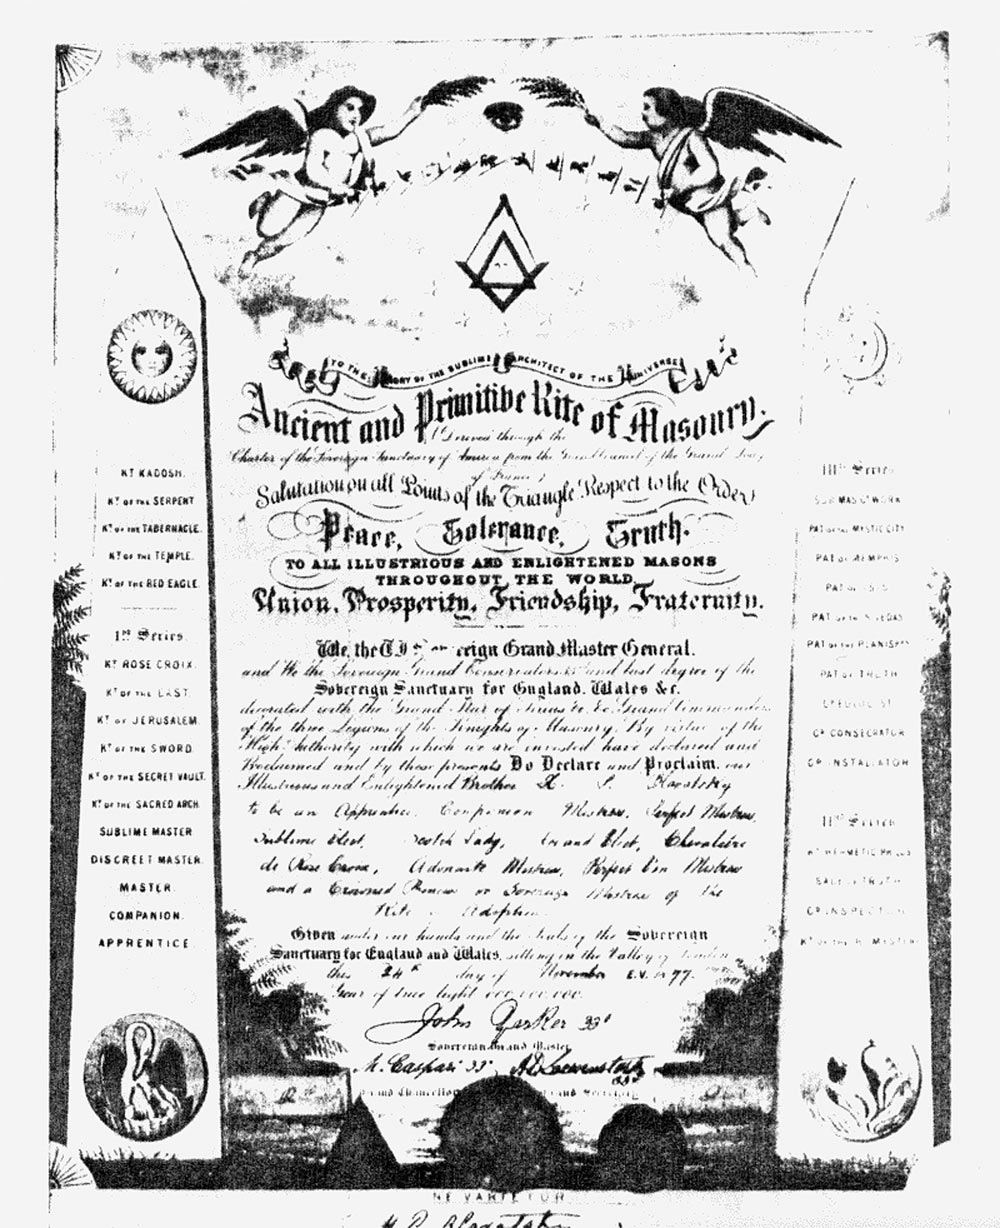 TO THE GLORY OF THE SUBLIME ARCHITECT OF THE UNIVERSE
Ancient and Primitive Rite of Masonry,
(Derived through the
Charter of the Sovereign Sanctuary of America from the Grand Council of the Grand Lodge
of France)
Salutation on all Points of the Triangle Respect to the Order
Peace, Tolerance, Truth.
TO ALL ILLUSTRIOUS AND ENLIGHTENED MASONS
THROUGHOUT THE WORLD
Union, Prosperity, Friendship, Fraternity.
We, the Sovereign Grand Master General.
and We the Sovereign Grand Conservators and last degree of the
Sovereign Sanctuary for England, Wales &c.
decorated with the Grand Star of Sirius &c &c Grand Commanders
of the three Legions of the Knights of Masonry, By virtue of the
High Authority with which we are invested have declared and
Proclaimed and by these presents Do Declare and Proclaim, our
Illustrious and Enlightened Brother H. P. Blavatsky
to be an Apprentice, Companion Mistress, Perfect Mistress,
Sublime Elect, Scotch Lady, Grand Elect, Chevaliere
de Rose Croix, Adonaite Mistress, Perfect Ven Mistress
and a Crowned Princess or Sovereign Mistress of the
Rite of Adoption.
Given under our hands and the Seals of the Sovereign
Sanctuary for England and Wales, sitting in the Valley of London
this 24th day of November E.V. 1877
Year of true light 000,000,000.
John Yarker 33°
Sovereign Grand Master
M. Caspari 33° A. D. Loewenstark 33°
Grand Chancellor Grand Secretary
NE VARIETUR
H P Blavatsky
KT KADOSH.
KT OF THE SERPENT
KT OF THE TABERNACLE.
KT OF THE TEMPLE.
KT OF THE RED EAGLE.
1st Series.
KT ROSE CROIX.
KT OF THE EAST
KT OF JERUSALEM.
KT OF THE SWORD.
KT OF THE SECRET VAULT.
KT OF THE SACRED ARCH.
SUBLIME MASTER
DISCREET MASTER.
MASTER.
COMPANION.
APPRENTICE.
IIIrd Series
SUB MAS GT WORK
PAT OF THE MYSTIC CITY
PAT OF MEMPHIS
PAT OF ISIS
PAT OF THE VEDAS
PAT OF THE PLANISPRS
PAT OF TRUTH
GP CONSECRATOR
GP INSTALLATOR
IInd Series
KT HERMETIC PHILOS
SAGE OF TRUTH
GP INSPECTOR